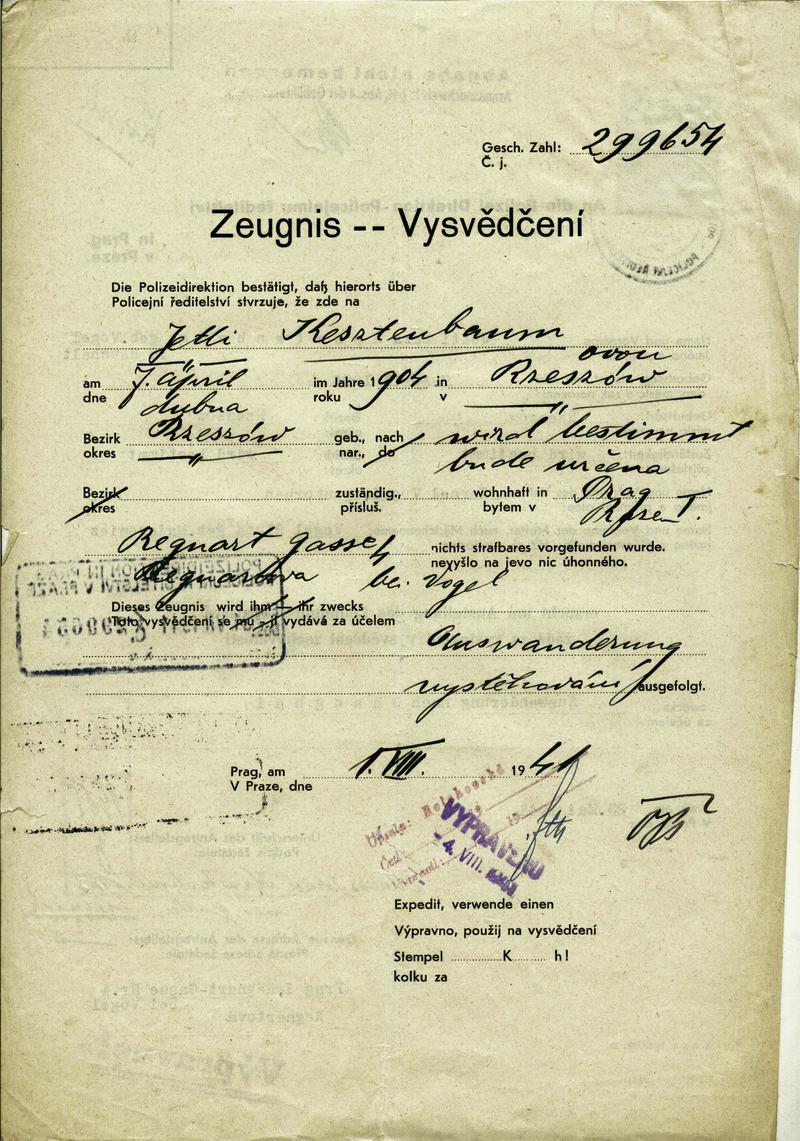 Gesch. Zahl: 299654
Č. j.
Zeugnis -- Vysvědčení
Die Polizeidirektion bestätigt, daß hierorts über
Policejní ředitelství stvrzuje, že zde na
Jetti Kesztenbaum
ovou
am 7. April im Jahre 1904 in Rzeszów
dne dubna roku v
Bezirk Rzeszów geb., nach wird bestimmt
okres nar., do bude určena
Bezirk zuständig., wohnhaft in Prag
okres přísluš. bytem v I.
Regnart gasse 4 nichts strafbares vorgefunden wurde.
nevyšlo na jevo nic úhonného.
Regnartova bei Vogel
Dieses Zeugnis wird ihm – ihr zwecks
Toto vysvědčení se mu – jí vydává za účelem
Auswanderung
vystěhování ausgefolgt.
Prag, am 1. VIII. 1941
V Praze, dne
VYPRAVENO
- 4. VIII. 1941
Expedit, verwende einen
Výpravno, použij na vysvědčení
Stempel K h!
kolku za